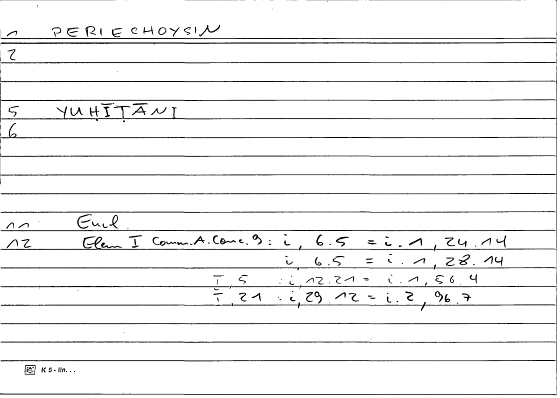 1 PERIECHOYSIN
2
5 YUḤĪṬĀNI
6
11 Eucl.
12 Elem I Comm.A.Conc.9: i, 6.5 = i.1, 24.14
i, 6.5 = i.1, 28.14
I, 5 : i, 12.21 = i.1, 56.4
I, 21 : i, 29.12 = i.2, 96.7
K 5 - lin. . .